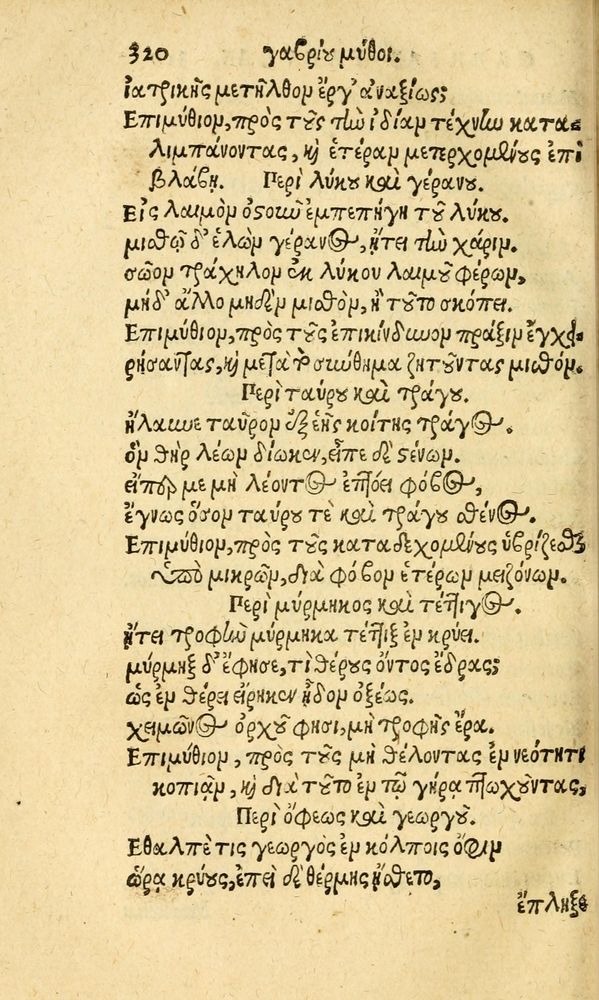 320 γαβρίου μύθοι.
ἰατρικῆς μετῆλθον ἔργ' ἀναξίως;
Επιμύθιον, πρὸς τοὺς τὴν ἰδίαν τέχνην κατα-
λιμπάνοντας, καὶ ἑτέραν μετερχομένους ἐπὶ
βλάβῃ. Περὶ λύκου καὶ γέρανου.
Εἰς λαιμὸν ὀστοῦν ἐμπεπήγη τοῦ λύκου.
μισθῷ δ' ἑλὼν γέρανος, ᾔτει τὴν χάριν.
σῶον τράχηλον ἐκ λύκου λαιμοῦ φέρων,
μηδ' ἄλλο μηδὲν μισθὸν, ἢ τοῦτο σκόπει.
Επιμύθιον, πρὸς τοὺς ἐπικίνδυνον πρᾶξιν ἐγχει
ρήσαντας, καὶ μετὰ τὸ σύνθημα ζητοῦντας μισθόν.
Περὶ ταύρου καὶ τράγου.
ἤλαυνε ταῦρον ἐξ ἑῆς κοίτης τράγος.
ὃν θὴρ λέων δίωκεν, εἶπε δὲ στένων.
εἴπερ με μὴ λέοντος ἐπτόει φόβος,
ἔγνως ὅσον ταύρου τὲ καὶ τράγου σθένος.
Επιμύθιον, πρὸς τοὺς καταδεχομένους ὑβρίζεσθαι
ὑπὸ μικρῶν, διὰ φόβον ἑτέρων μειζόνων.
Περὶ μύρμηκος καὶ τέττιγος.
ᾔτει τροφὴν μύρμηκα τέττιξ ἐν κρύει.
μύρμηξ δ' ἔφησε, τί θέρους ὄντος ἔδρας;
ὡς ἐν θέρει εἴρηκεν ᾖδον ὀξέως.
χειμῶνος ὀρχοῦ φησι, μὴ τροφῆς ἔρα.
Επιμύθιον, πρὸς τοὺς μὴ θέλοντας ἐν νεότητι
κοπιᾷν, καὶ διὰ τοῦτο ἐν τῷ γήρᾳ πτωχοῦντας,
Περὶ ὄφεως καὶ γεωργοῦ.
Εθαλπέ τις γεωργὸς ἐν κόλποις ὄφιν
ὥρᾳ κρύους, ἐπεὶ δὲ θέρμης ᾔσθετο,
ἔπληξε